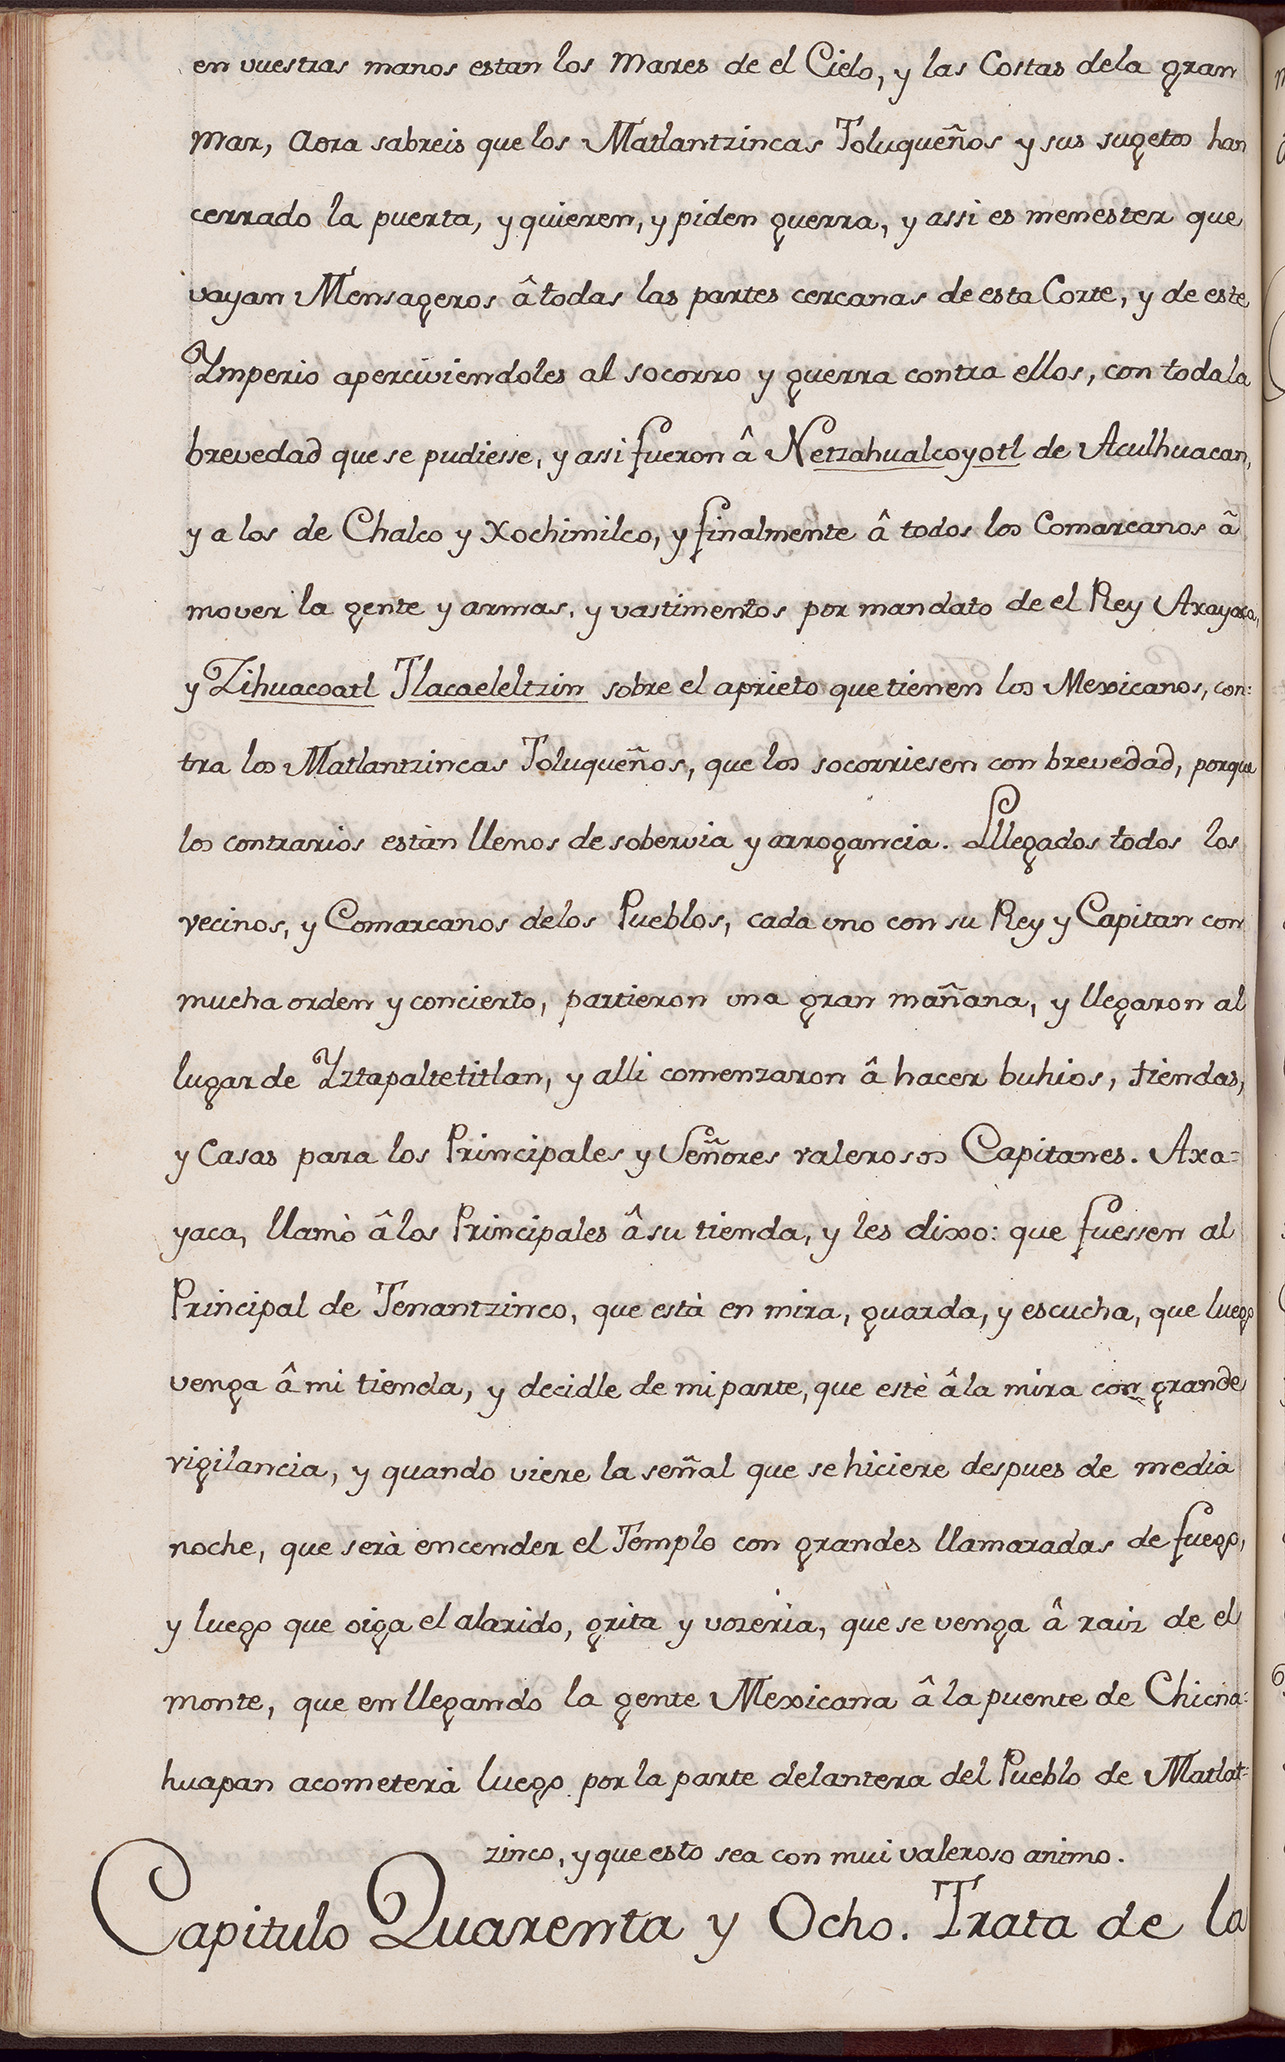 en vuestras manos estan los Mares de el Cielo, y las Costas dela gran
Mar, Aora sabreis que los Matlantzincas Toluqueños y sus sugetos han
cerrado la puerta, y quieren, y piden guerra, y assi es menester que
vayan Mensageros â todas las partes cercanas de esta Corte, y de este
Ymperio aperciviendoles al socorro y guerra contra ellos, con toda la
brevedad que se pudiesse, y assi fueron â Netzahualcoyotl de Aculhuacan,
y a los de Chalco y Xochimilco, y finalmente â todos los Comarcanos ã
mover la gente y armas, y vastimentos por mandato de el Rey Axayaca,
y Zihuacoatl Tlacaeleltzin sobre el aprieto que tienen los Mexicanos, con:
tra los Matlantzincas Toluqueños, que los socorriesen con brevedad, porque
los contrarios estàn llenos de sobervia y arrogancia. Lllegados todos los
vecinos, y Comarcanos delos Pueblos, cada uno con su Rey y Capitan con
mucha orden y concierto, partieron una gran mañana, y llegaron al
lugar de Yztapaltetitlan, y alli comenzaron â hacer buhios, tiendas,
y Casas para los Principales y Señores valerosos Capitanes. Axa=
yaca, llamò â los Principales â su tienda, y les dixo: que fuessen al
Principal de Tenantzinco, que està en mira, guarda, y escucha, que luego
venga â mi tienda, y decidle de mi parte, que estè â la mira con grande
vigilancia, y quando viere la señal que se hiciere despues de media
noche, que serà encender el Templo con grandes llamaradas de fuego,
y luego que oiga el alarido, grita y vozeria, que se venga â raiz de el
monte, que en llegando la gente Mexicana â la puente de Chicna=
huapan acometerà luego por la parte delantera del Pueblo de Matlat=
zinco, y que esto sea con mui valeroso animo.
Capitulo Quarenta y Ocho. Trata de la